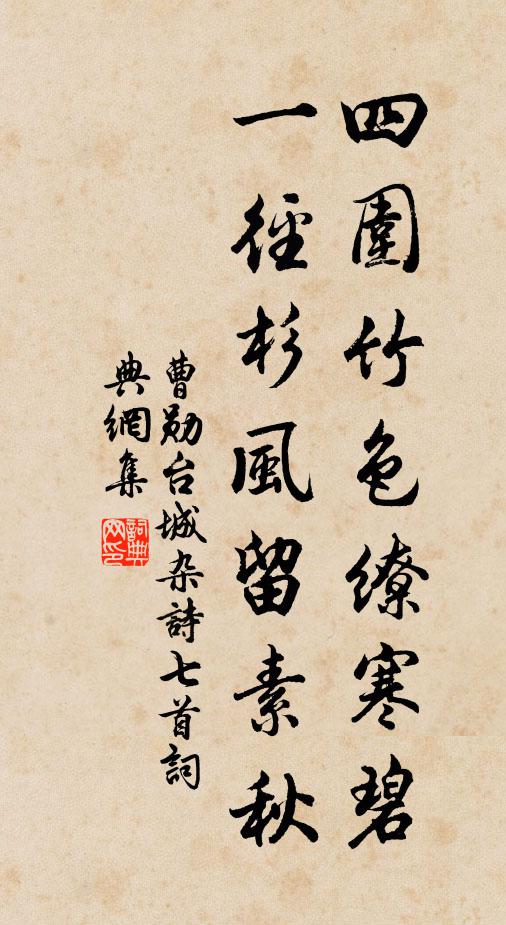 四圍竹色繚寒碧
一徑杉風留素秋
曹勛台城杂詩七首詞
典網集
詞典
网印